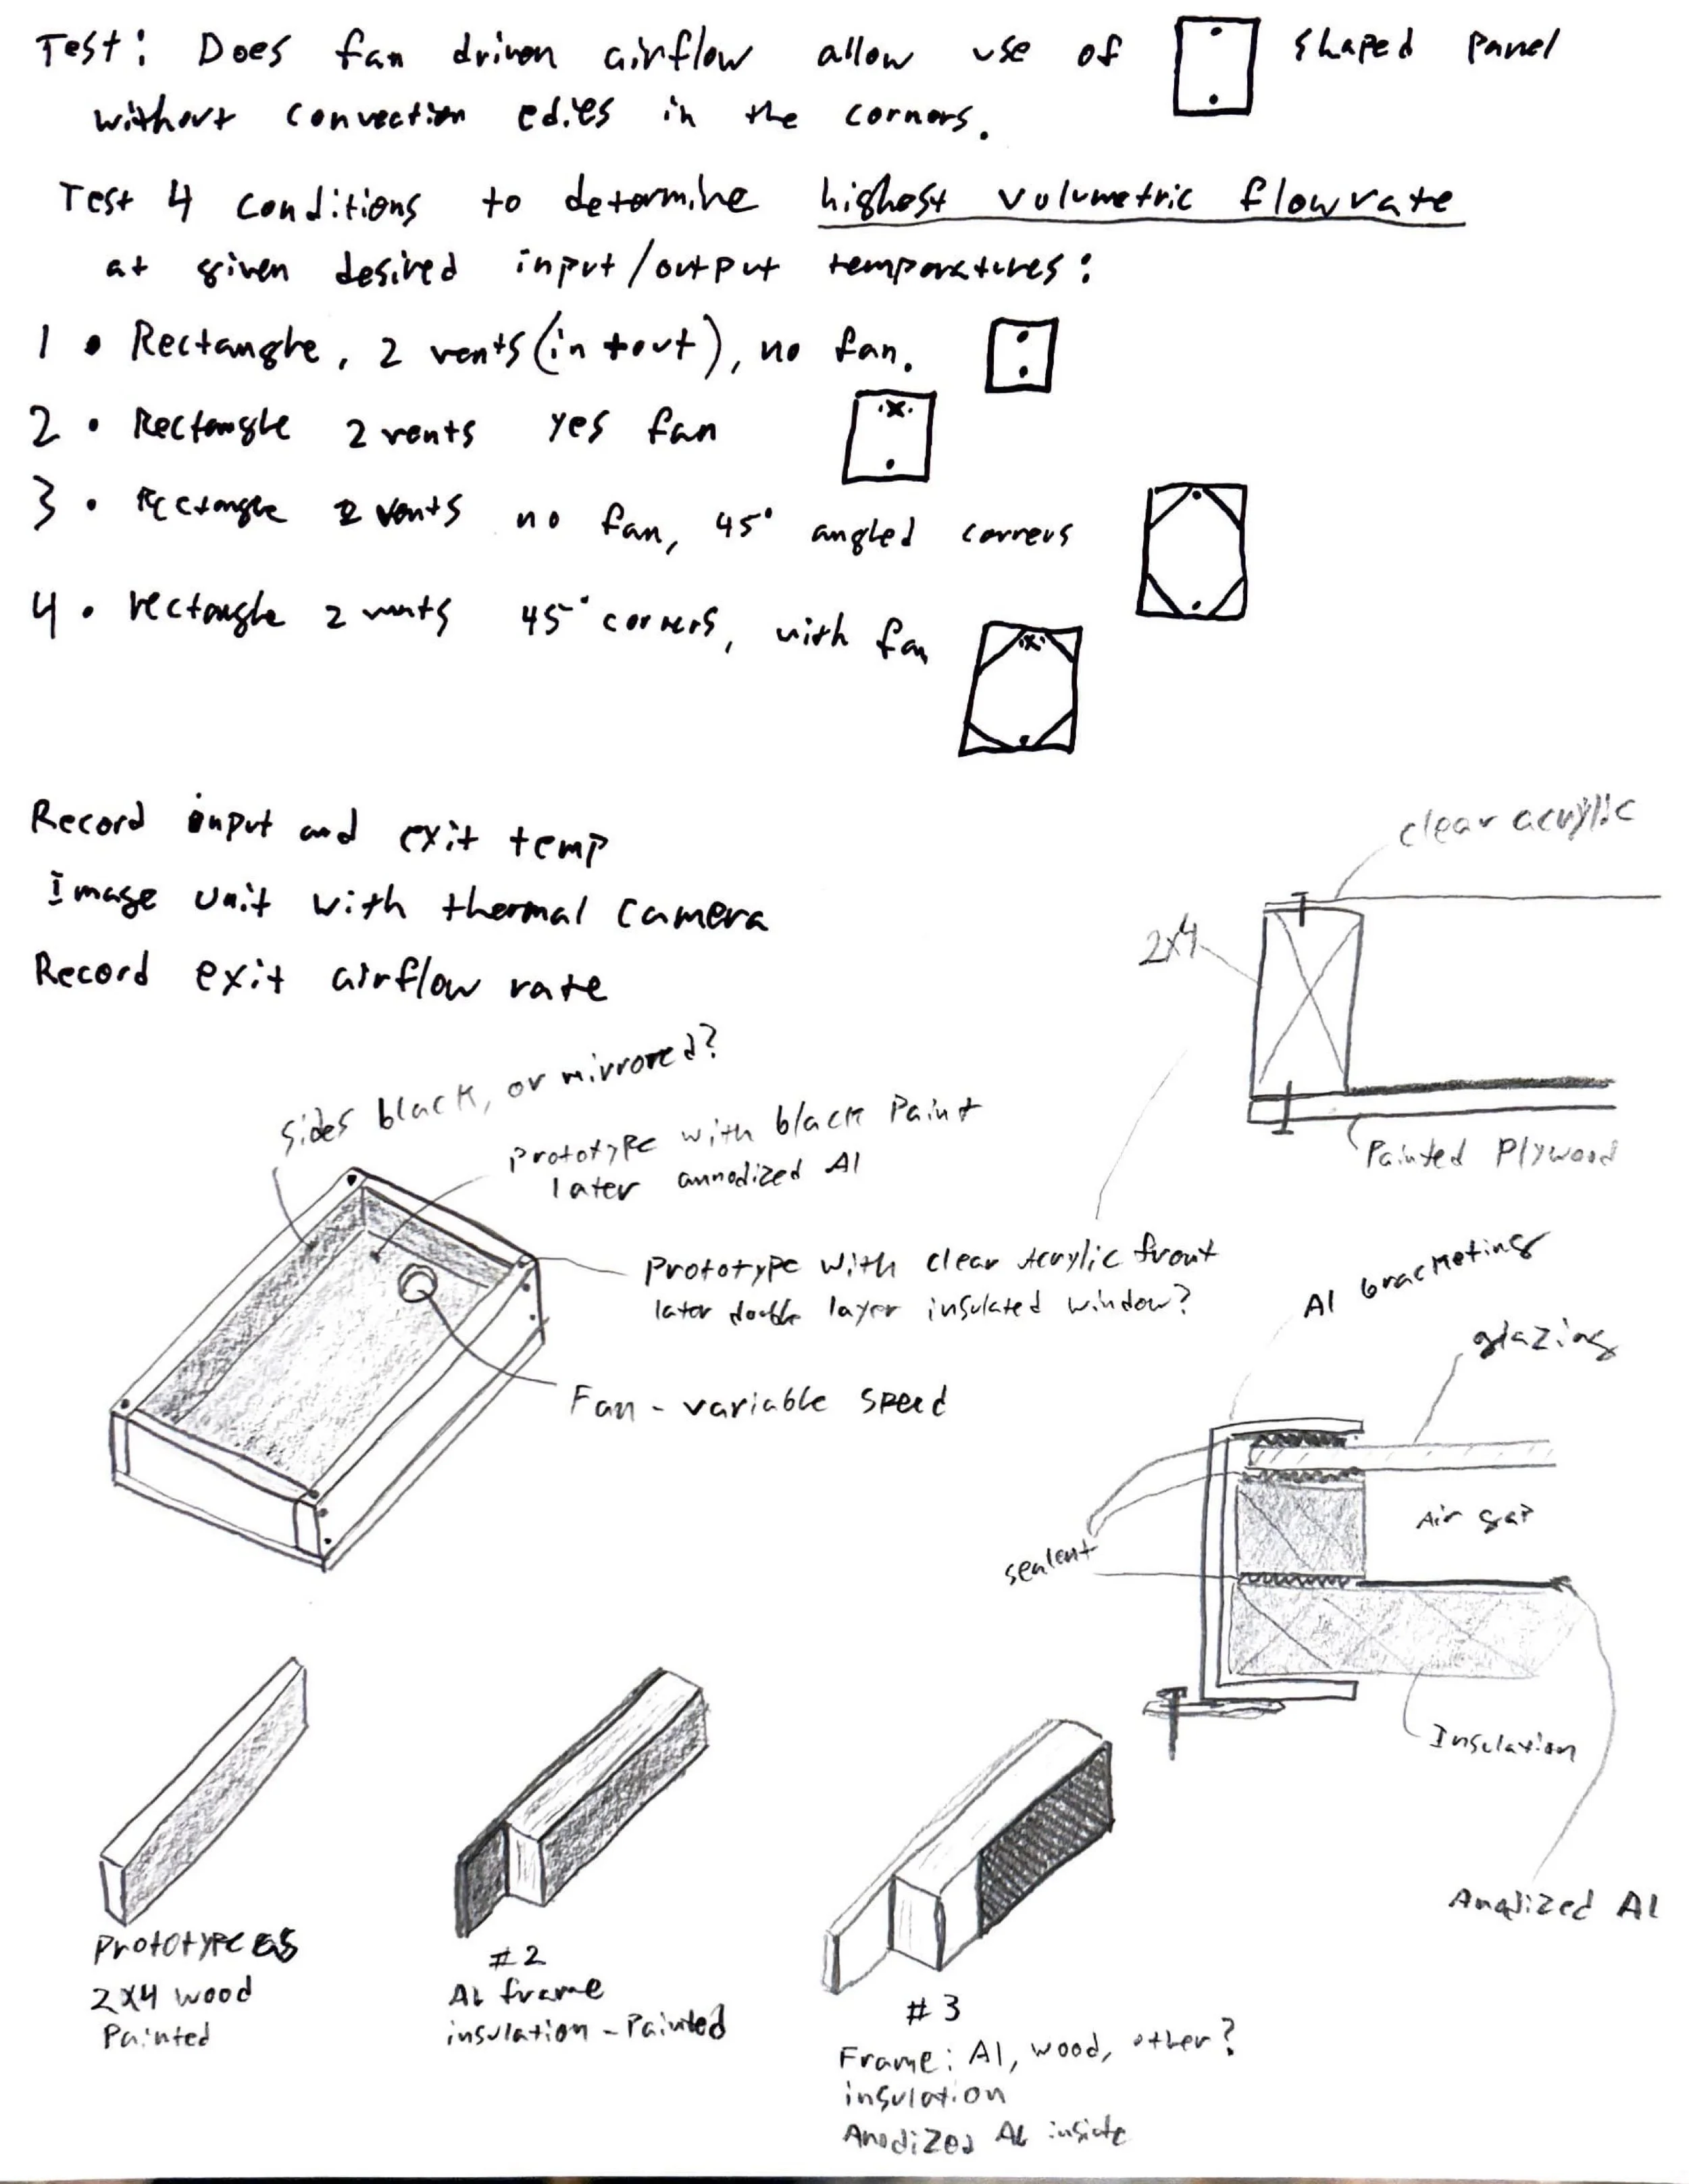 Test: Does fan driven airflow allow use of shaped panel
without convection edies in the corners.
Test 4 conditions to determine highest volumetric flowrate
at given desired input/output temperatures:
1 • Rectangle, 2 vents (in + out), no fan.
2 • Rectangle 2 vents yes fan
3 • Rectangle 2 vents no fan, 45° angled corners
4 • rectangle 2 vents 45° corners, with fan
Record input and exit temp
Image unit with thermal camera
Record exit airflow rate
clear acrylic
2x4
Painted Plywood
sides black, or mirrored?
Prototype with black Paint
later annodized Al
Prototype with clear acrylic front
later double layer insulated window?
Fan - variable speed
Al bracketing
glazing
Air gap
sealent
Insulation
Anodized Al
Prototype as
2x4 wood
Painted
#2
AL frame
insulation - Painted
#3
Frame: Al, wood, other?
insulation
Anodized AL inside